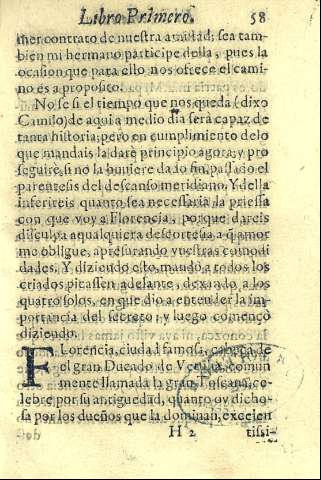 Libro Primero. 58
mer contrato de nuestra amistad; sea tam
bien mi hermano participe della, pues la
ocasion que para ello nos ofrece el cami
no es a proposito.
No se si el tiempo que nos queda (dixo
Camilo) de aqui a medio dia serà capaz de
tanta historia; pero en cumplimiento delo
que mandais la darè principio agora; y pro
seguirè, si no la huuiere dado fin, passado el
parentesis del descanso meridiano. Y della
inferireis quanto sea necessaria la priessa
con que voy a Florencia, porque dareis
disculpa aqualquiera descortesia a q̃ amor
me obligue, apresurando vuestras comodi
dades. Y diziendo esto, mandò a todos los
criados picassen adelante, dexando a los
quatro solos, en que dio a entender la im-
portancia del secreto; y luego començò
diziendo.
FLorencia, ciudad famosa, cabeça de
el gran Ducado de comun
mente llamada la gran Toscana, ce-
lebre por su antiguedad, quanto oy dicho-
sa por los dueños que la dominan, excelen
H 2 tissi-